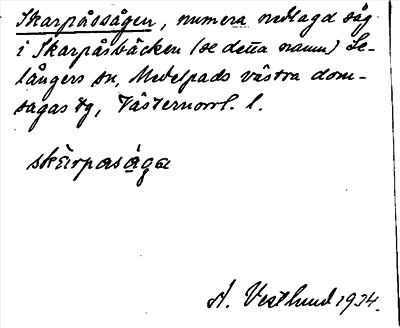 Skarpåssågen, numera nedlagd såg
i Skarpåsbäcken (se detta namn) Se-
långers sn, Medelpads västra dom-
sagas tg, Västernorrl. l.
skärpasåga
A. Vestlund 1934.